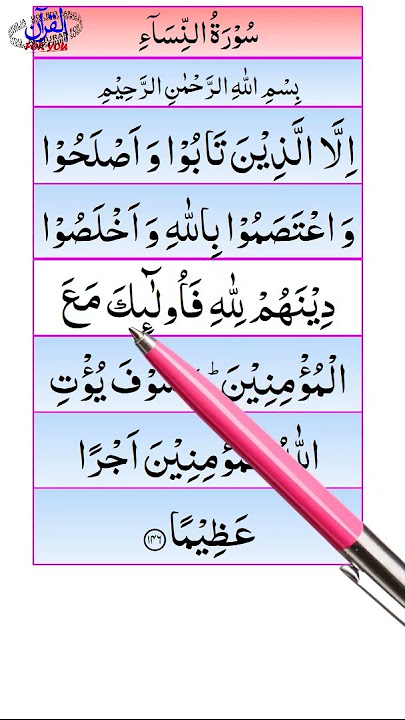 القرآن
FOR YOU
سُوْرَةُ النِّسَآءِ
بِسْمِ اللهِ الرَّحْمٰنِ الرَّحِيْمِ
اِلَّا الَّذِيْنَ تَابُوْا وَ اَصْلَحُوْا
وَ اعْتَصَمُوْا بِاللّٰهِ وَ اَخْلَصُوْا
دِيْنَهُمْ لِلّٰهِ فَاُولٰٓئِكَ مَعَ
الْمُؤْمِنِيْنَ ؕ يُؤْتِ
اللّٰهُ اَجْرًا
عَظِيْمًا ۝۱۴۶